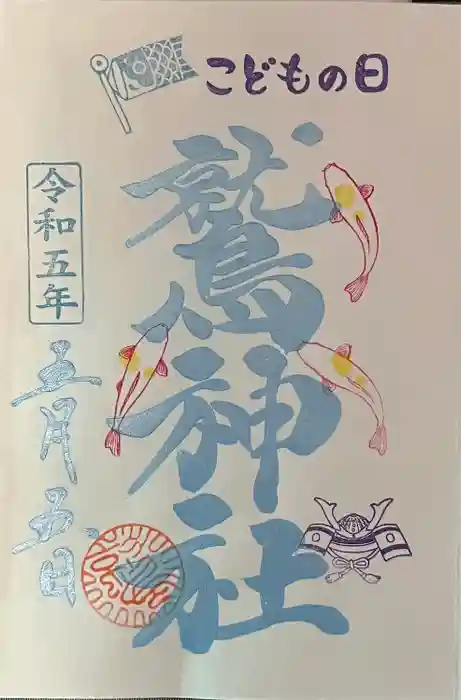 こどもの日
鷲神社
令和五年
五月五日